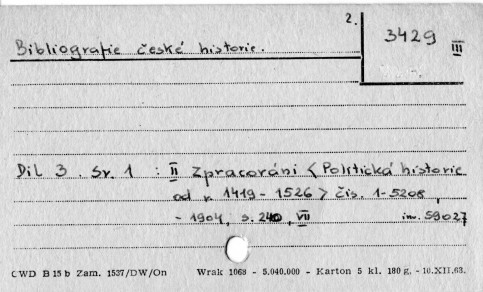 2.
3429 III
Bibliografie české historie.
Díl 3. Sv. 1 : II Zpracování < Politická historie
od r. 1419 - 1526 > čís. 1-5208,
- 1904, s. 240, VII inv. 59027
CWD B 15 b Zam. 1537/DW/On Wrak 1068 - 5.040.000 - Karton 5 kl. 180 g. - 10.XII.63.